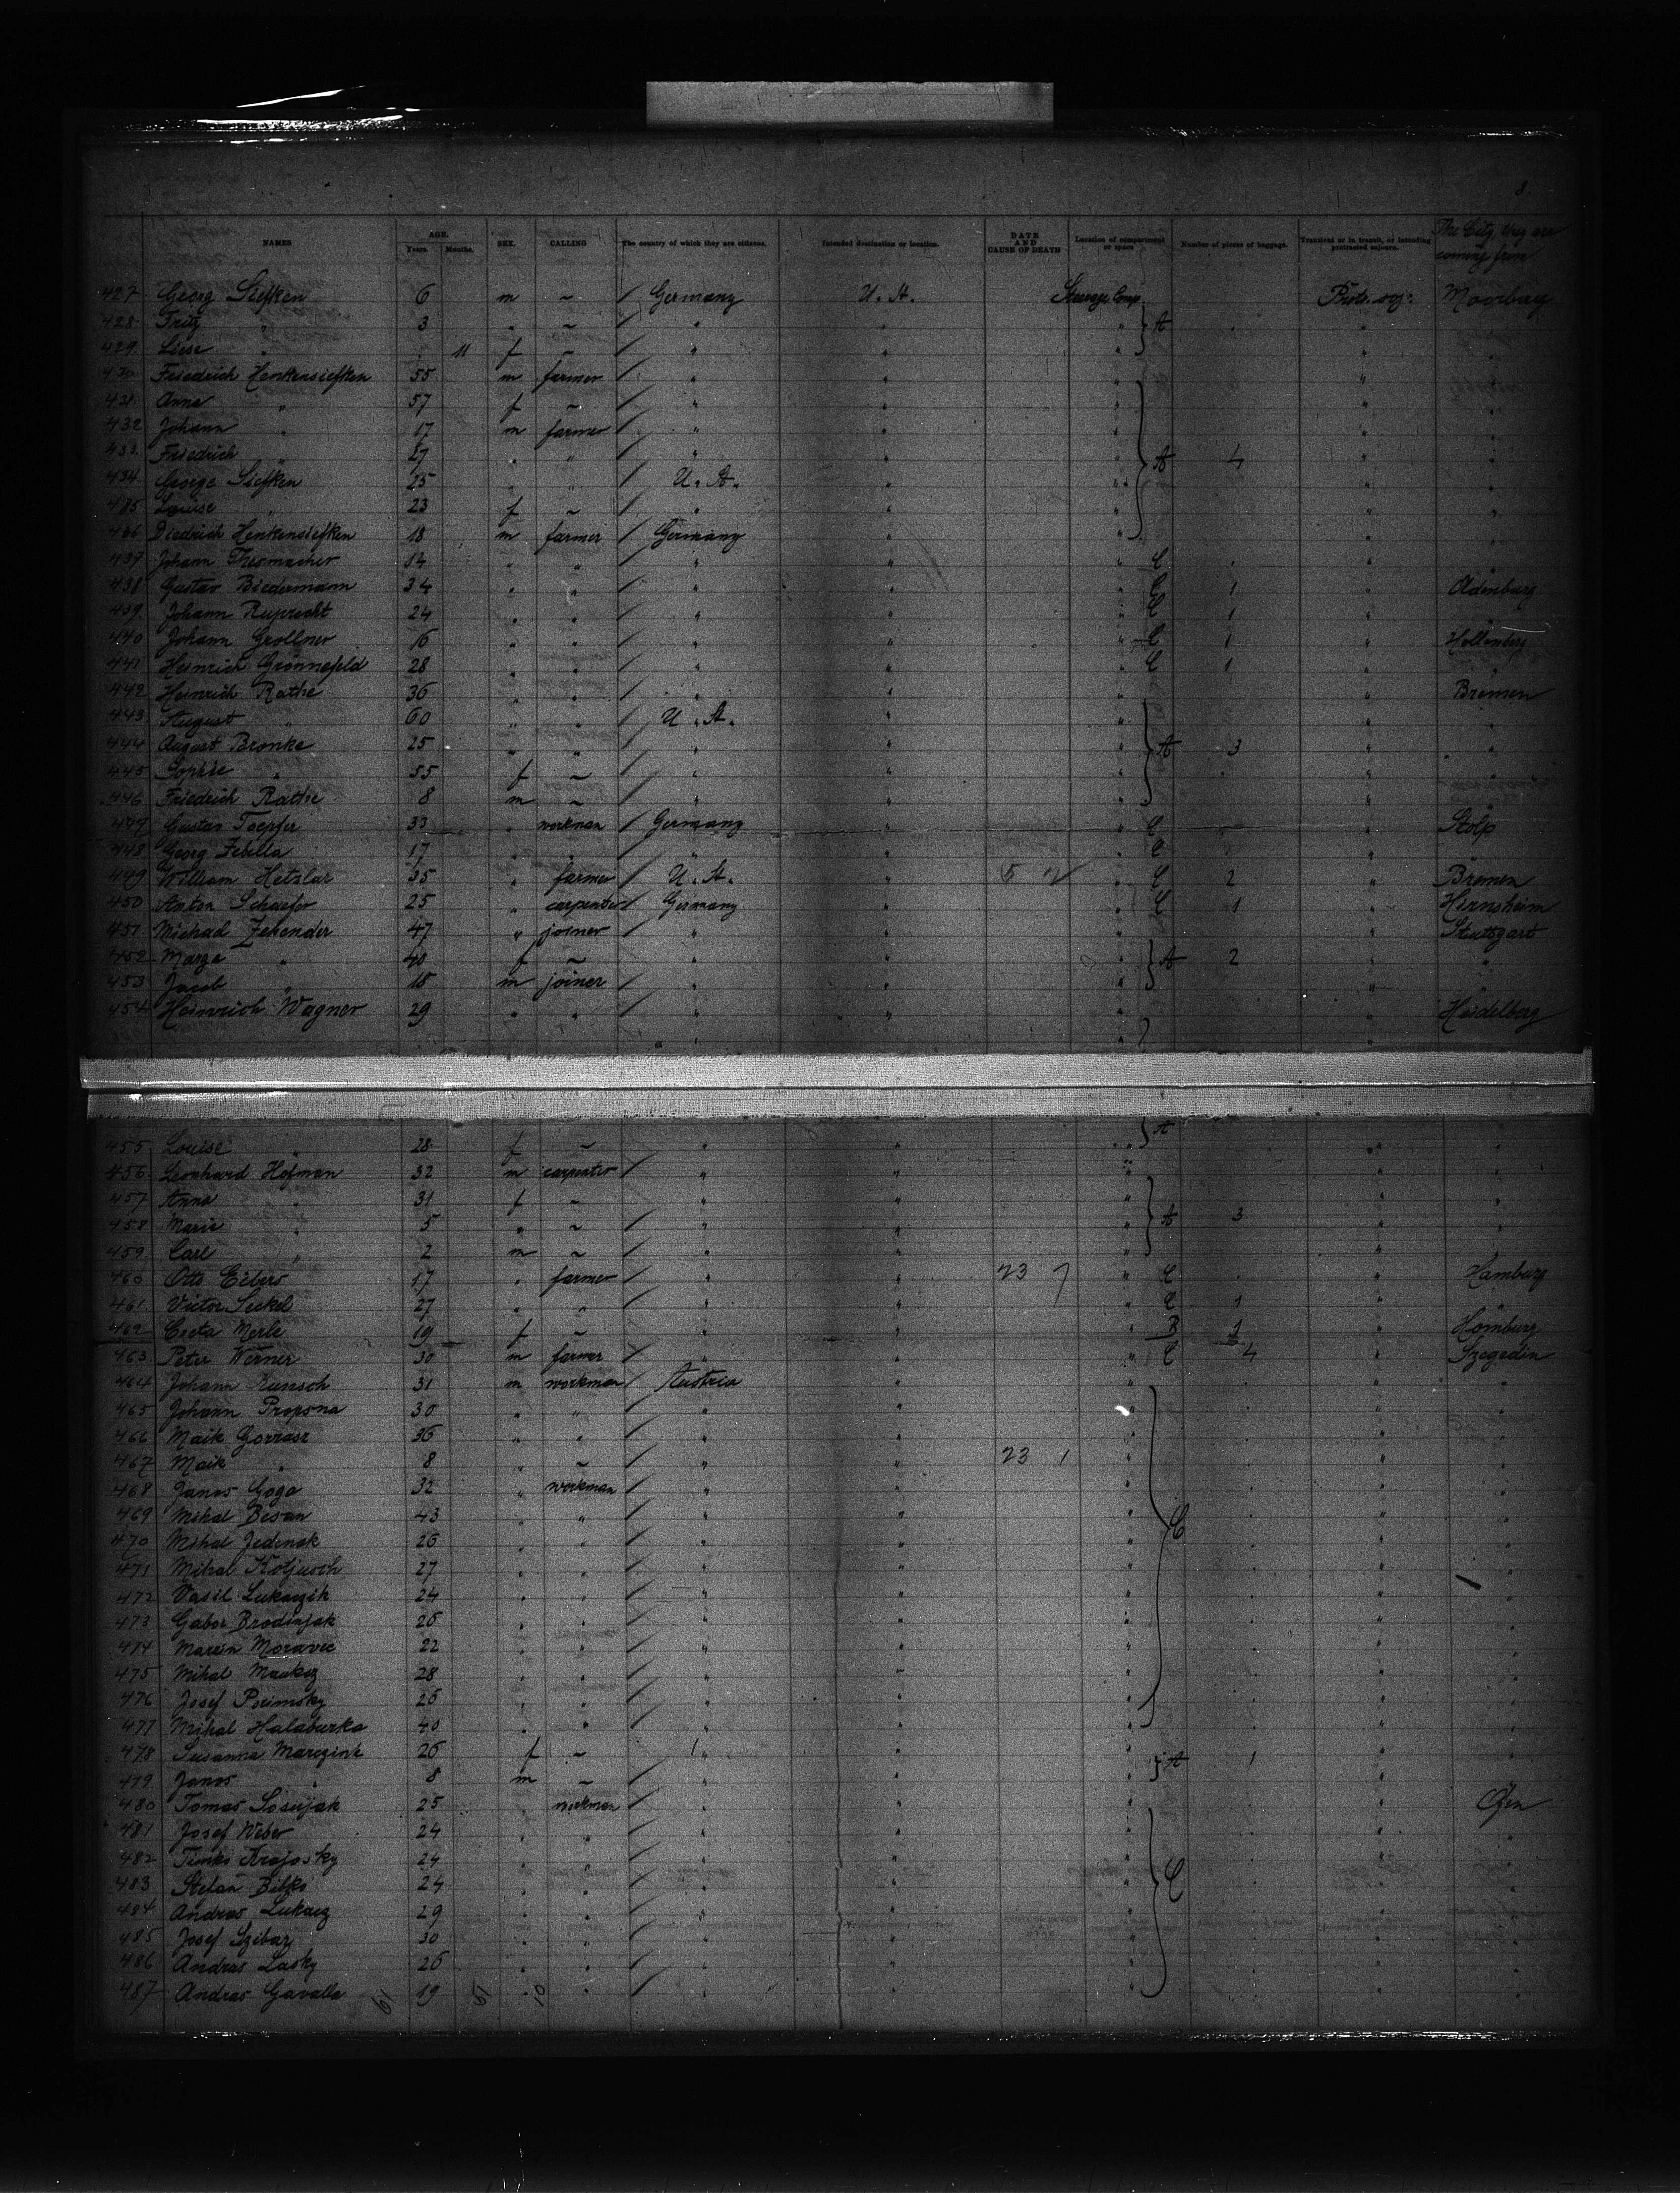 8.
NAMES AGE. Years. Months. SEX. CALLING The country of which they are citizens. Intended destination or location. DATE AND CAUSE OF DEATH Location of compartment or space Number of pieces of baggage. Transient or in transit, or intending protracted sojourn. The City they are coming from
427 Georg Siefken 6 m ~ / Germany U. St. Steerage Comp. Moorburg
428 Fritz " 3 " ~ / " " " A " "
429 Liese " 11 f ~ / " " " "
430 Friedrich Henkensiefken 55 m farmer / " " " "
431 Anna " 57 f ~ / " " " " "
432 Johann " 17 m farmer / " " " " "
433 Friedrich " 27 " " / " " " A 4 " "
434 George Siefken 25 " " / U. St. " " " "
435 Louise " 23 f ~ / " " " " "
436 Diedrich Henkensiefken 18 m farmer / Germany " " " "
437 Johann 14 " " / " " " C " "
438 Gustav Biedermann 34 " " / " " " C 1 " Oldenburg
439 Johann Ruprecht 24 " " / " " " C 1 "
440 Johann Grollner 16 " " / " " " C 1 "
441 Heinrich Grönnefeld 28 " " / " " " C 1 " "
442 Heinrich Rathe 36 " " / " " " " Bremen
443 August " 60 " " / U. St. " " " "
444 August Bronke 25 " " / " " " A 3 " "
445 Sophie " 55 f ~ / " " " "
446 Friedrich Rathe 8 m ~ / " " " "
447 Gustav Toepfer 33 " workman / Germany " " C " Stolp
448 Georg Zebella 17 " " / " " " C "
449 William Hetzlar 35 " farmer / U. St. " " C 2 " Bremen
450 Anton Schaefer 25 " carpenter / Germany " " C 1 " Hirnsheim
451 Michael Zehender 47 " joiner / " " " " Stuttgart
452 Marga " 40 f ~ / " " " A 2 " "
453 Jacob " 18 m joiner / " " " " "
454 Heinrich Wagner 29 " " / " " " " Heidelberg
455 Louise " 28 f ~ " " " A " "
456 Leonhard Hofman 32 m carpenter / " " " " "
457 Anna " 31 f ~ " " " " "
458 Marie " 5 " ~ / " " " A 3 " "
459 Carl " 2 m ~ / " " " " "
460 Otto Eilers 17 " farmer / " " 23 7 " C " Hamburg
461 Victor Seckel 27 " " / " " " C 1 "
462 Creta Merle 19 f ~ / " " " B 1 " Homburg
463 Peter Werner 30 m farmer / " " " C 4 " Szegedin
464 Johann Kunsch 31 m workman / Austria " " " "
465 Johann Propona 30 " " / " " " " "
466 Maik Gorrasz 36 " " / " " " " "
467 Maik " 8 " ~ / " " 23 1 " " "
468 Janos Goga 32 " workman / " " " " "
469 Mihal Besan 43 " " / " " " C " "
470 Mihal Jedinak 26 " " / " " " " "
471 Mihal 27 " " / " " " " "
472 Vasil Lukaczik 24 " " / " " " " "
473 Gabor Brodinjak 26 " " / " " " " "
474 Martin Moravec 22 " " / " " " " "
475 Mihal 28 " " / " " " " "
476 Josef Porimsky 26 " " / " " " " "
477 Mihal Halaburka 40 " " / " " " " "
478 Susanna Marczink 26 f ~ / " " " A 1 " "
479 Janos " 8 m ~ / " " " " "
480 Tomas 25 workman / " " " " Ofen
481 Josef Weber 24 " " / " " " " "
482 Krajosky 24 " " / " " " " "
483 Stefan Bilko 24 " " / " " " C " "
484 Andras Lukacz 29 " " / " " " " "
485 Josef Szibar 30 " " / " " " " "
486 Andras Lasky 26 " " / " " " " "
487 Andras Gavalla 19 " " / " " " " "
61 51 10